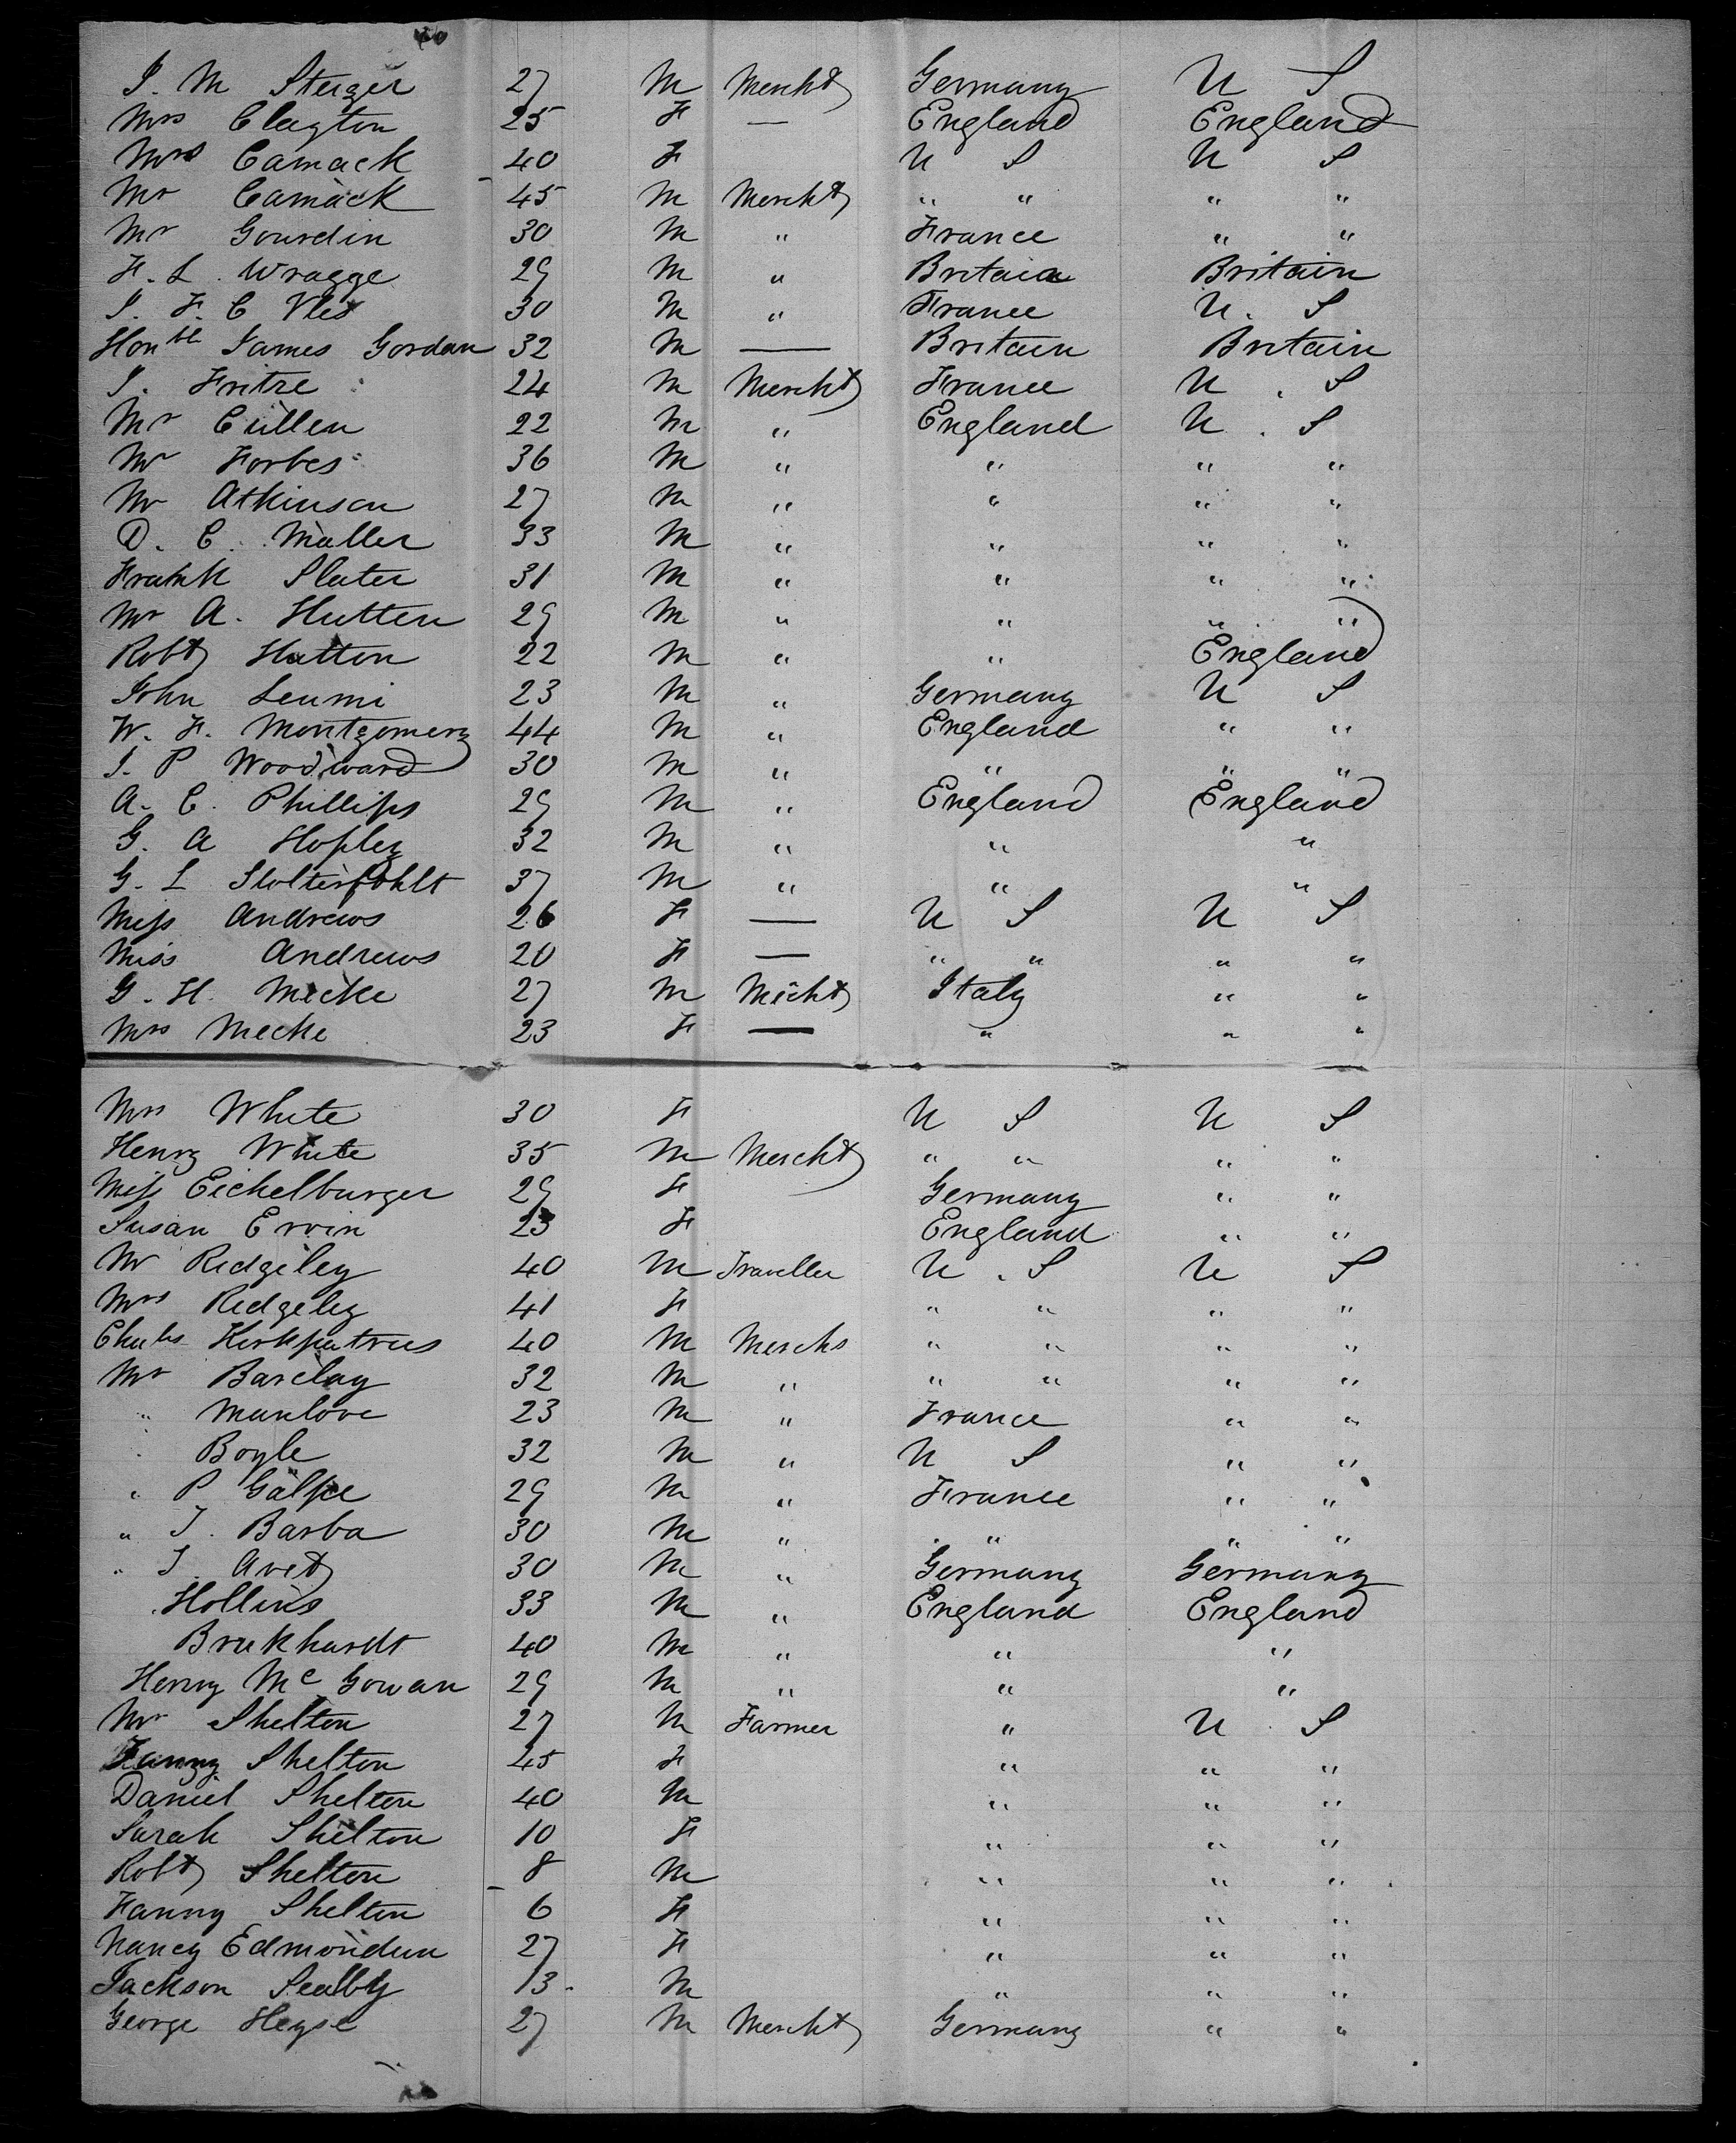 J. M Steiger 27 M Mercht Germany U S
Mrs Clayton 25 F — England England
Mrs Camack 40 F U S U S
Mr Camack 45 M Mercht " " " "
Mr Gourdin 30 M " France " "
F. L. Wragge 29 M " Britain Britain
J. F. C Vles 30 M " France U. S
Honble James Gordan 32 M — Britain Britain
J. Fritze 24 M Mercht France U. S
Mr Cullen 22 M " England U. S
Mr Forbes 36 M " " " "
Mr Atkinson 27 M " " " "
D. C. Muller 33 M " " " "
Frank Slater 31 M " " " "
Mr A. Hutten 29 M " " " "
Robt Hatton 22 M " " England
John Leumi 23 M " Germany U S
W. F. Montgomery 44 M " England " "
J. P Woodward 30 M " " " "
A. C. Phillips 29 M " England England
G. A Hopley 32 M " " "
G. L Stolterfohlt 37 M " " "
Miss Andrews 26 F — U S U S
Miss Andrews 20 F — " " " "
G. H. Mecke 27 M Mercht Italy " "
Mrs Mecke 23 F — " " "
Mrs White 30 F U S U S
Henry White 35 M Mercht " " " "
Miss Eichelburger 29 F Germany " "
Susan Ervin 23 F England " "
Mr Ridgeley 40 M Traveller U. S U S
Mrs Ridgeley 41 F " " " "
40 M Merchs " " " "
Mr Barclay 32 M " " " " "
" Manlove 23 M " France " "
" Boyle 32 M " U S " "
" P Galpe 29 M " France " "
" J. Barba 30 M " " " "
" J. Avet 30 M " Germany Germany
Hollins 33 M " England England
Brukhardt 40 M " " "
Henry Mc Gowan 29 M " " "
Mr Shelton 27 M Farmer " U S
Fanny Shelton 45 F " " "
Daniel Shelton 40 M " " "
Sarah Shelton 10 F " " "
Robt Shelton 8 M " " "
Fanny Shelton 6 F " " "
Nancy Edmondun 27 F " " "
Jackson 13 M " " "
George Heyse 27 M Mercht Germany " "